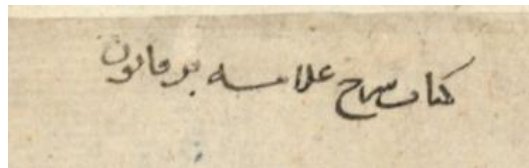 كتاب شرح علامه بر قانون